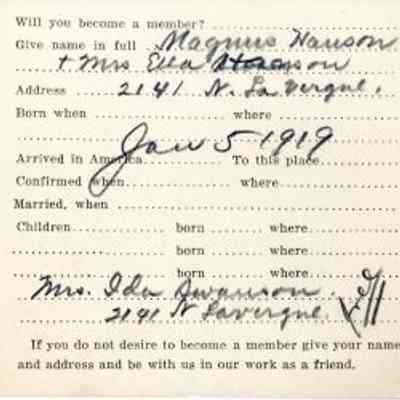 Will you become a member?
Give name in full Magnus Hanson
+ Mrs Ella Hanson
Address 2141 N. La Vergne.
Born when where
Jan 5 1919
Arrived in America To this place
Confirmed when where
Married, when
Children born where
born where
born where
Mrs. Ida Swanson
2141 N Lavergne.
If you do not desire to become a member give your name
and address and be with us in our work as a friend.